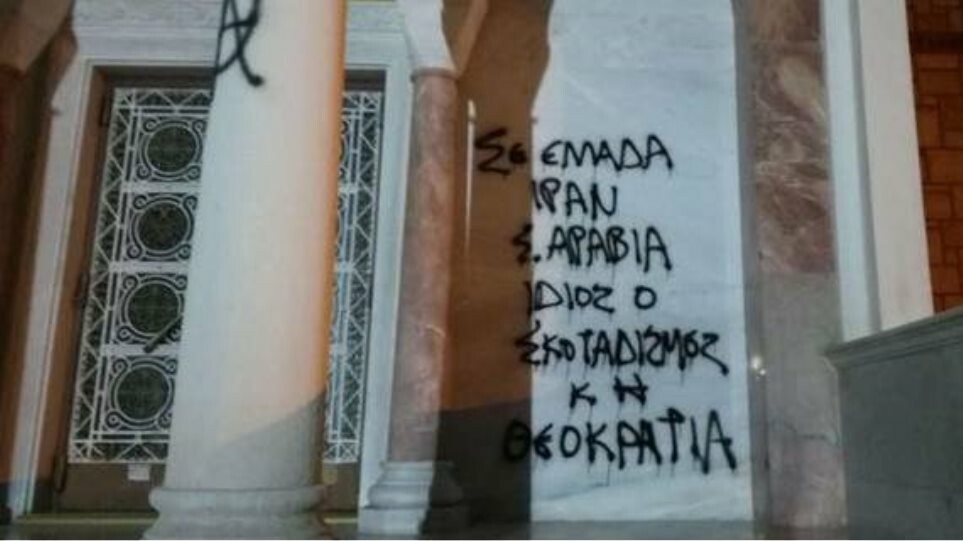 ΣΕ ΕΛΛΑΔΑ
ΙΡΑΝ
Σ. ΑΡΑΒΙΑ
ΙΔΙΟΣ Ο
ΣΚΟΤΑΔΙΣΜΟΣ
Κ Η
ΘΕΟΚΡΑΤΙΑ